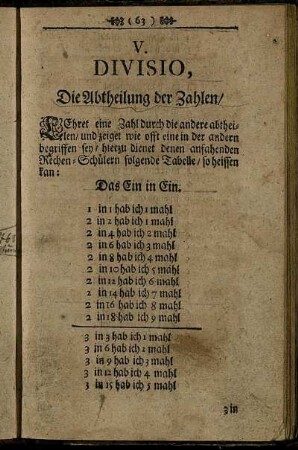 ( 63 )
V.
DIVISIO,
Die Abtheilung der Zahlen/
LEhret eine Zahl durch die andere abthei-
len/ und zeiget wie offt eine in der andern
begriffen sey/ hierzu dienet denen anfahenden
Rechen-Schülern folgende Tabelle/ so heissen
kan:
Das Ein in Ein.
1 in 1 hab ich 1 mahl
2 in 2 hab ich 1 mahl
2 in 4 hab ich 2 mahl
2 in 6 hab ich 3 mahl
2 in 8 hab ich 4 mahl
2 in 10 hab ich 5 mahl
2 in 12 hab ich 6 mahl
2 in 14 hab ich 7 mahl
2 in 16 hab ich 8 mahl
2 in 18 hab ich 9 mahl
3 in 3 hab ich 1 mahl
3 in 6 hab ich 2 mahl
3 in 9 hab ich 3 mahl
3 in 12 hab ich 4 mahl
3 in 15 hab ich 5 mahl
3 in